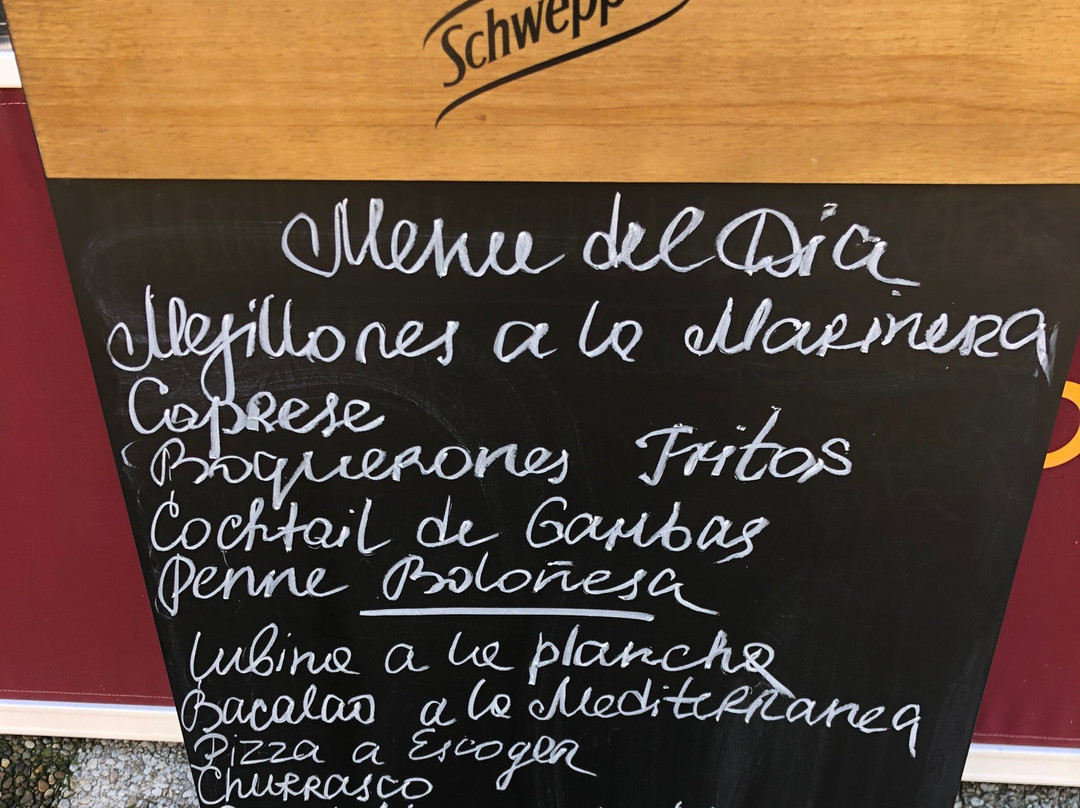 Schwepp
Menu del Dia
Mejillones a la Marinera
Caprese
Boquerones Fritos
Cocktail de Gambas
Penne Boloñesa
Lubina a la plancha
Bacalao a la Mediterranea
Pizza a Escoger
Churrasco